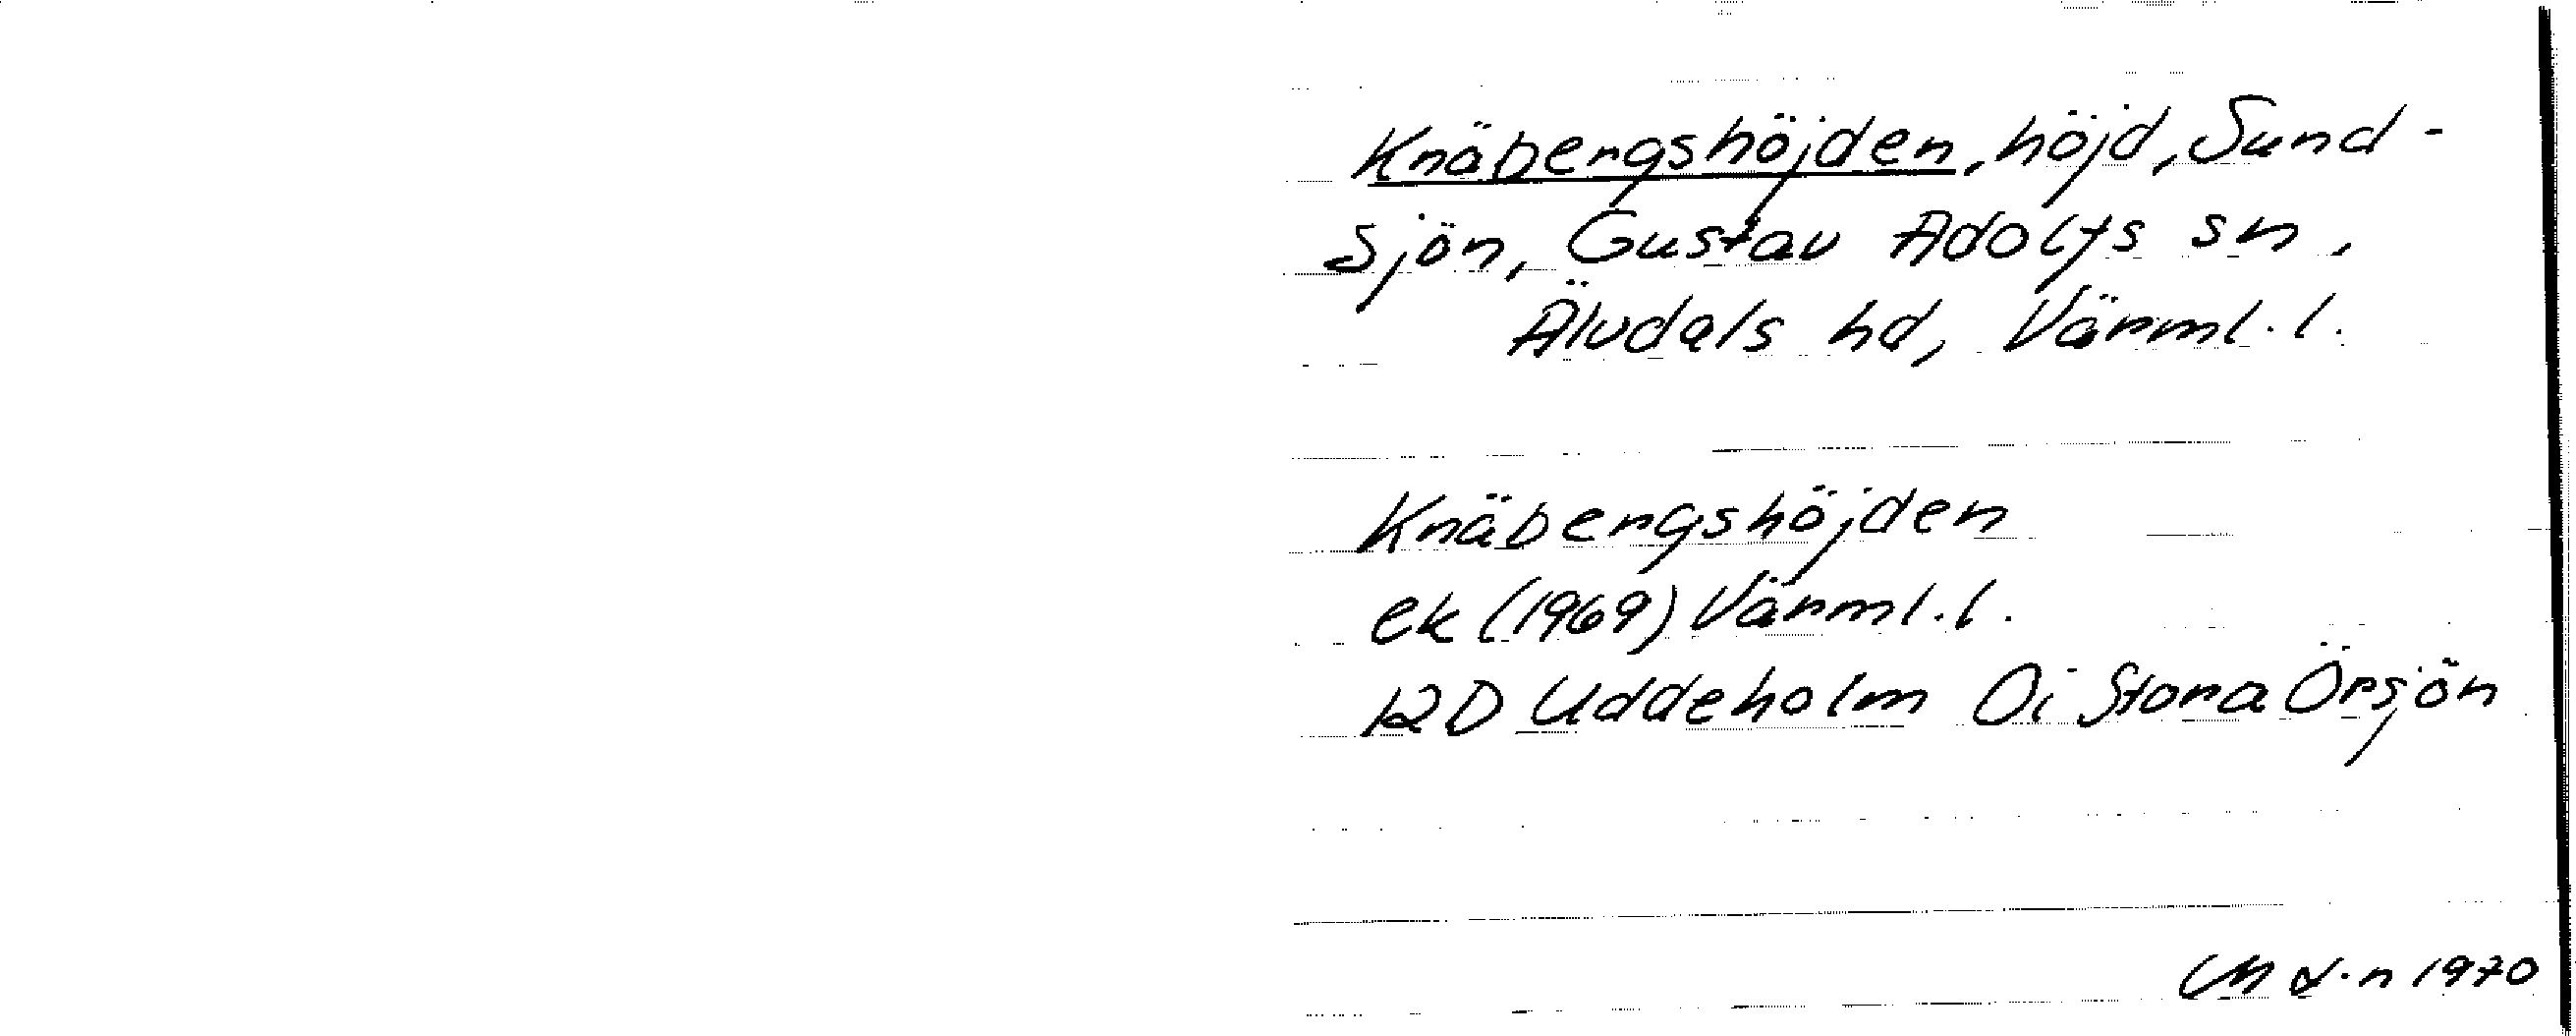 Knäbergshöjden, höjd, Sund-
sjön, Gustav Adolfs sn,
Älvdals hd, Värml. l.
Knäbergshöjden
ek (1969) Värml. l.
12D Uddeholm Oi Stora Örsjön
1970